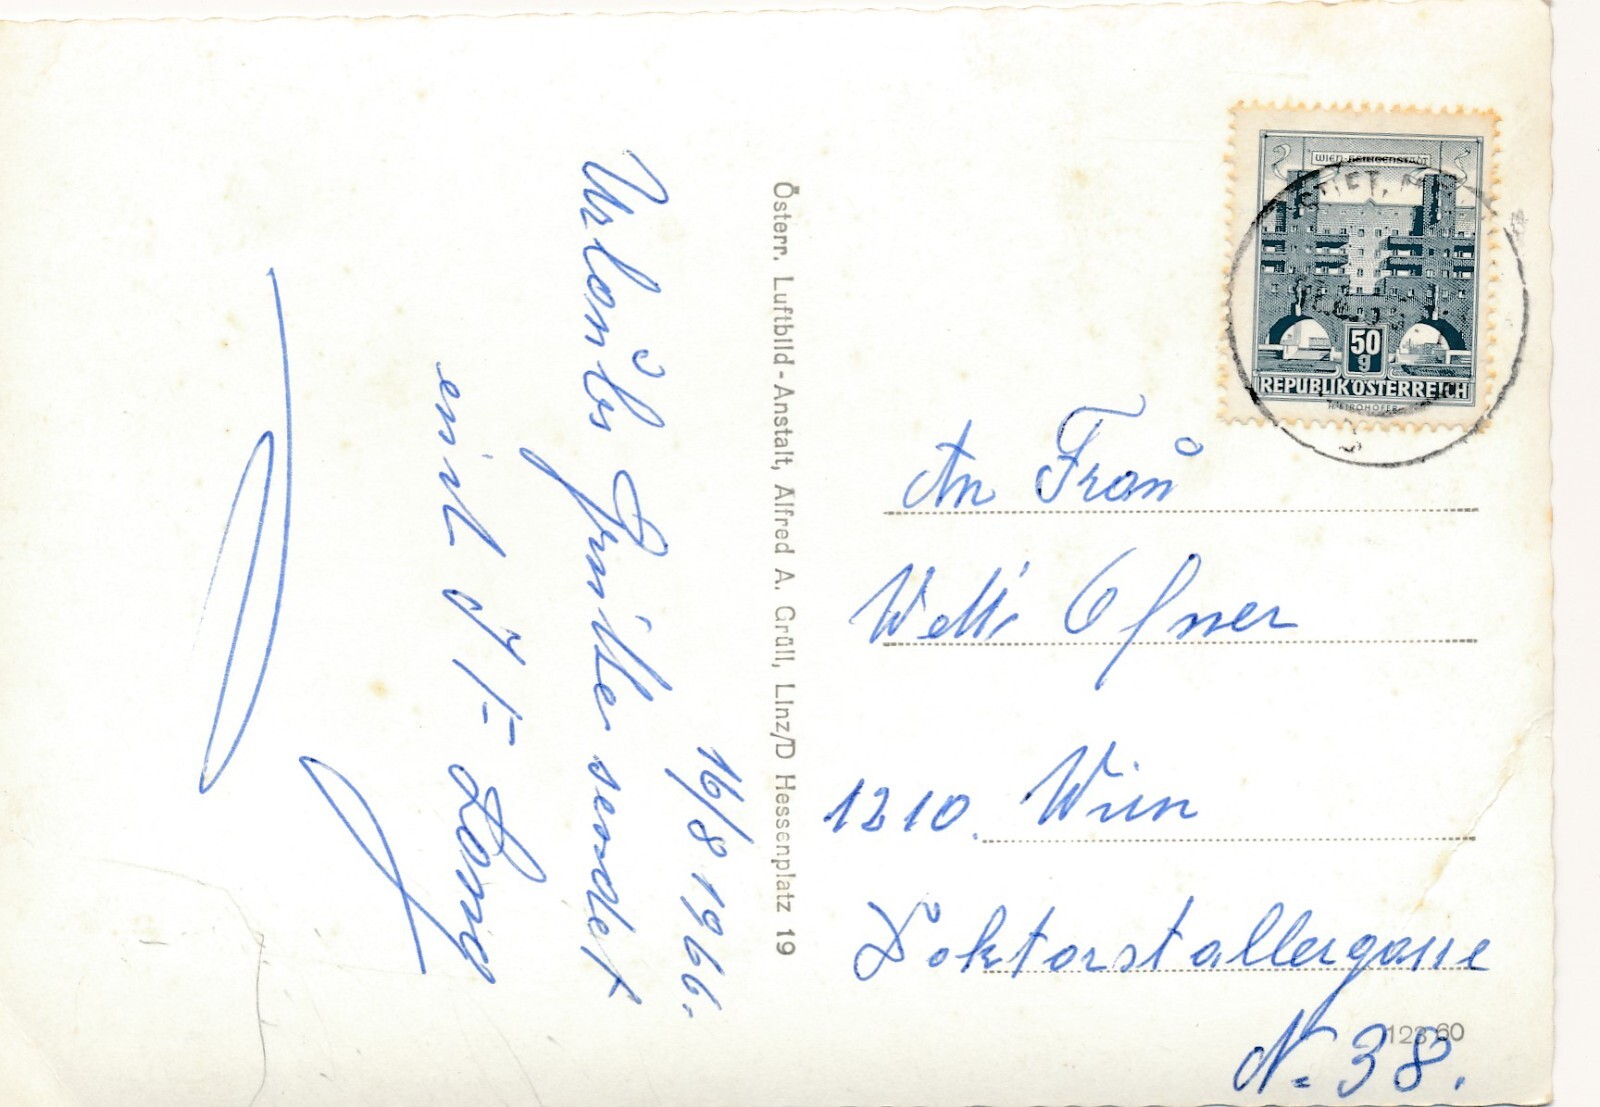 16/8 1966.
Urlaubs Grüße sendet
Österr. Luftbild-Anstalt, Alfred A. Grüll, Linz/D Hessenplatz 19
WIEN-HEILIGENSTADT
50
g
REPUBLIK ÖSTERREICH
An Frau
Welli Ofner
1210. Wien
Doktorstallergasse
N. 38.
12360